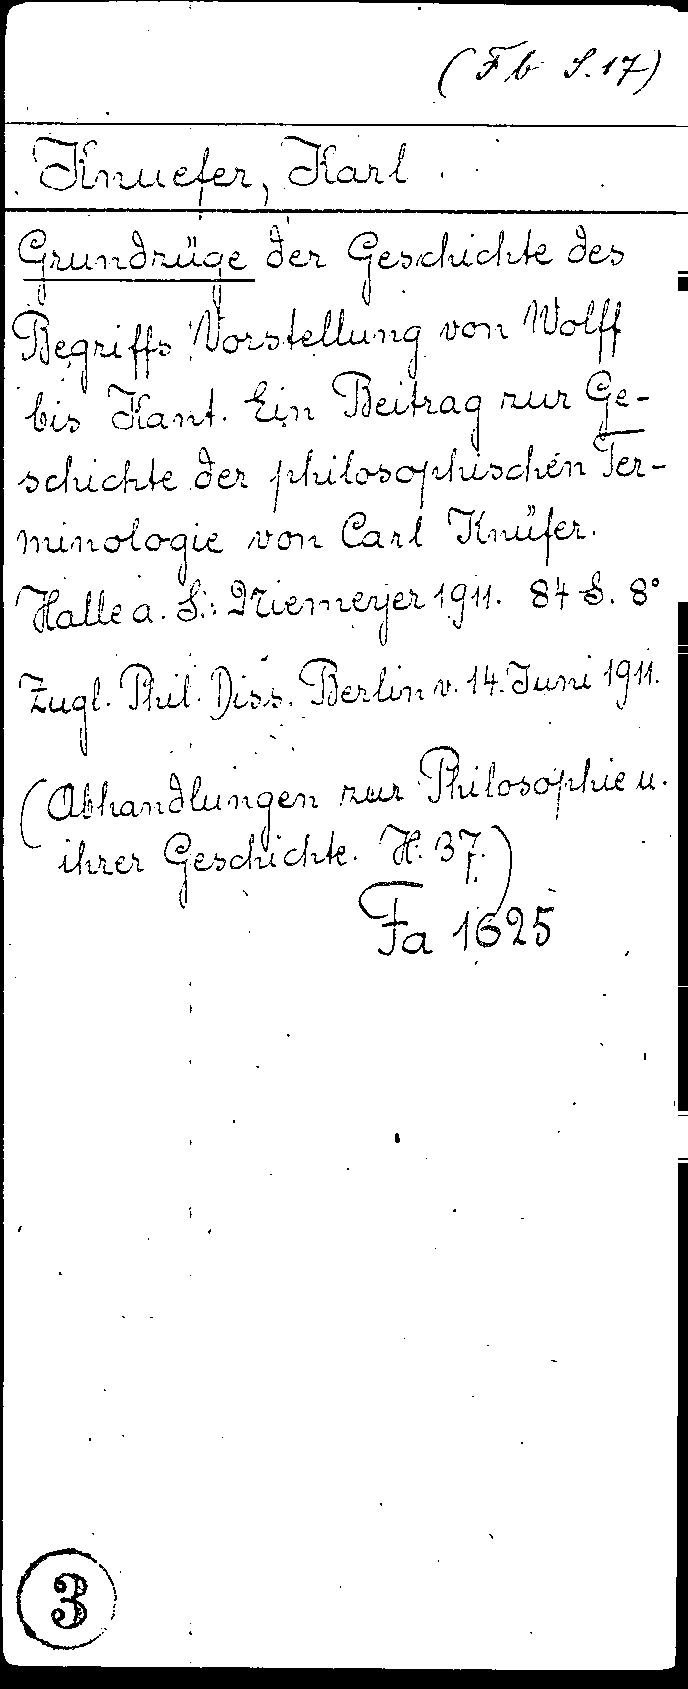 (Fb S.17)
Knuefer, Karl
Grundzüge der Geschichte des
Begriffs Vorstellung von Wolff
bis Kant. Ein Beitrag zur Ge-
schichte der philosophischen Ter-
minologie von Carl Knüfer.
Halle a. S.: Niemeyer 1911. 84 S. 8°
Zugl. Phil. Diss. Berlin v. 14. Juni 1911.
(Abhandlungen zur Philosophie u.
ihrer Geschichte. H. 37.)
Fa 1625
3